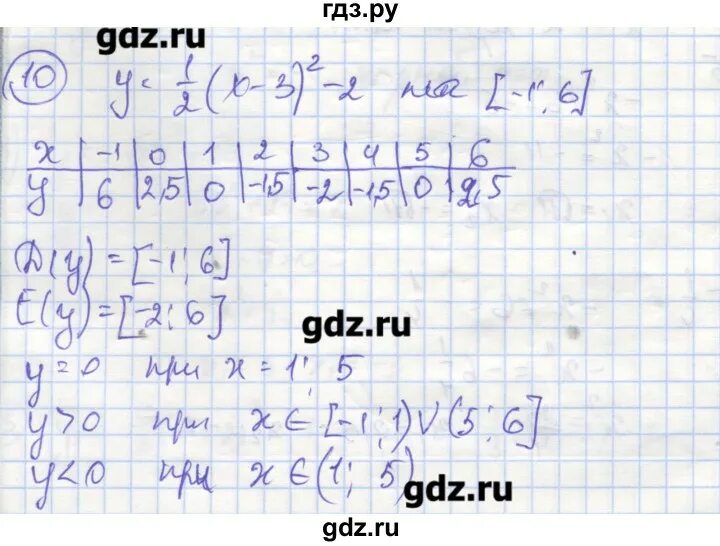 гдз.ру
gdz.ru
10 y = 1/2 (x - 3)² - 2 на [-1; 6]
x | -1 | 0 | 1 | 2 | 3 | 4 | 5 | 6
y | 6 | 2,5 | 0 | -1,5 | -2 | -1,5 | 0 | 2,5
D(y) = [-1; 6]
E(y) = [-2; 6]
gdz.ru
y = 0 при x = 1; 5
y > 0 при x ∈ [-1; 1) ∪ (5; 6]
y < 0 при x ∈ (1; 5)
gdz.ru
gdz.ru